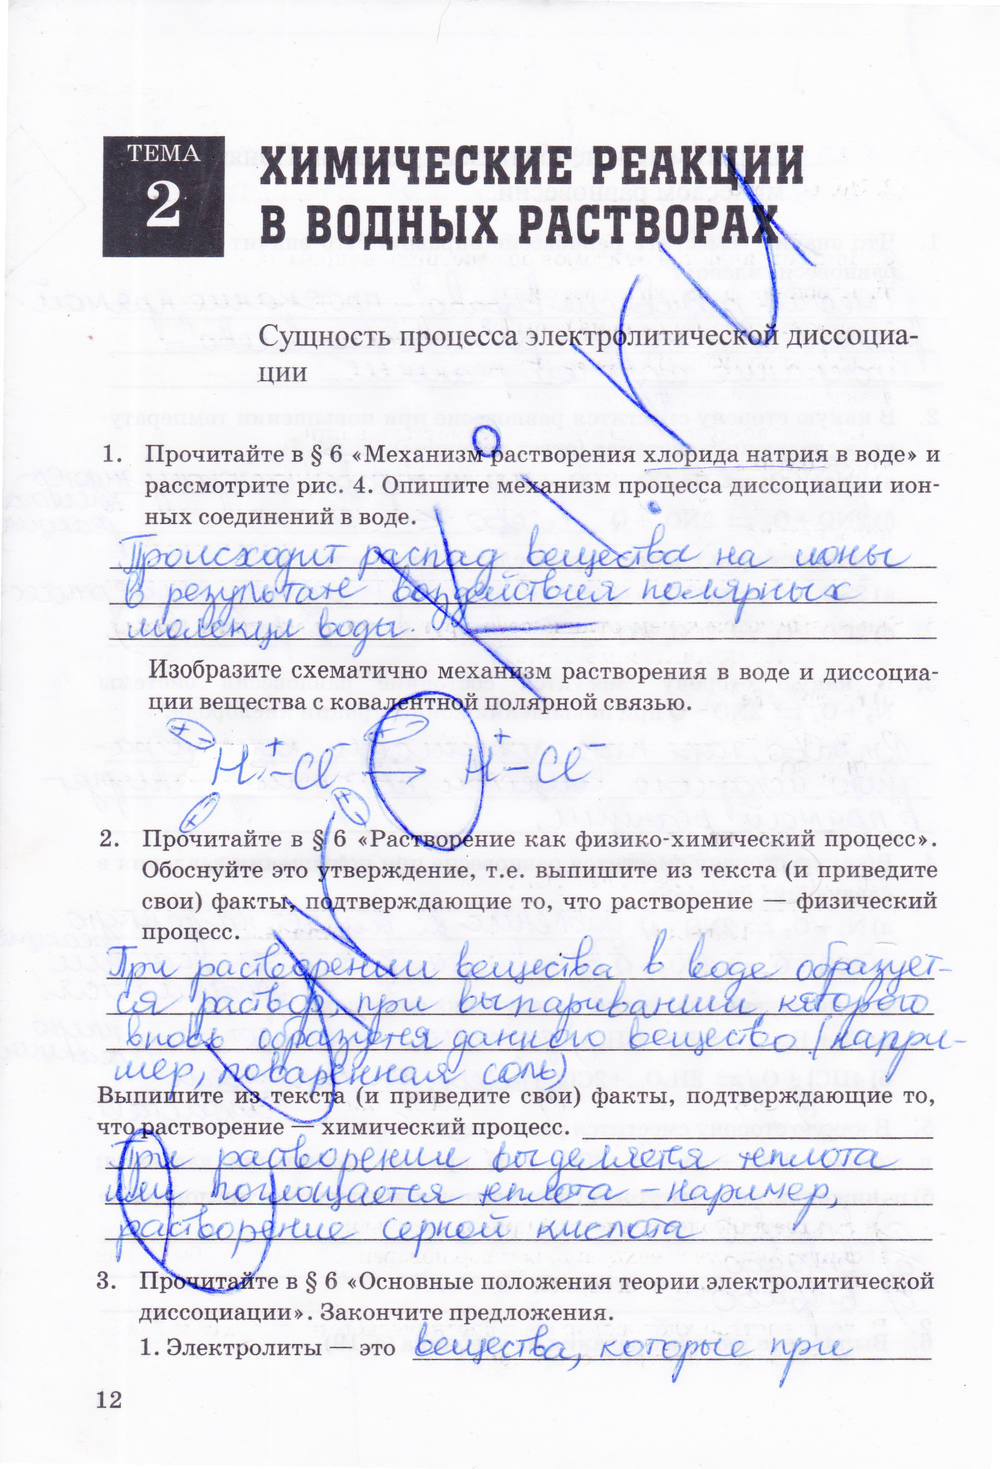 ТЕМА
2
ХИМИЧЕСКИЕ РЕАКЦИИ
В ВОДНЫХ РАСТВОРАХ
Сущность процесса электролитической диссоциа-
ции
1. Прочитайте в § 6 «Механизм растворения хлорида натрия в воде» и
рассмотрите рис. 4. Опишите механизм процесса диссоциации ион-
ных соединений в воде.
Происходит распад вещества на ионы
в результате воздействия полярных
молекул воды.
Изобразите схематично механизм растворения в воде и диссоциа-
ции вещества с ковалентной полярной связью.
H⁺–Cl⁻ → H⁺–Cl⁻
2. Прочитайте в § 6 «Растворение как физико-химический процесс».
Обоснуйте это утверждение, т.е. выпишите из текста (и приведите
свои) факты, подтверждающие то, что растворение — физический
процесс.
При растворении вещества в воде образует-
ся раствор, при выпаривании, которого
вновь образуется данного вещество (напри-
мер, поваренная соль)
Выпишите из текста (и приведите свои) факты, подтверждающие то,
что растворение — химический процесс.
При растворении выделяется теплота
или поглощается теплота – например,
растворение серной кислота
3. Прочитайте в § 6 «Основные положения теории электролитической
диссоциации». Закончите предложения.
1. Электролиты — это вещества, которые при
12